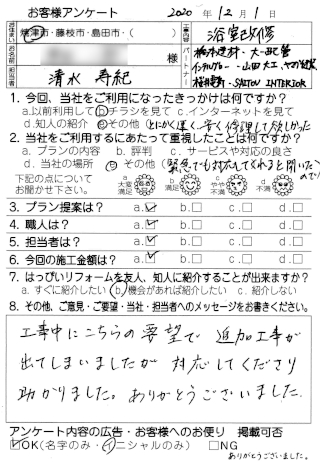 お客様アンケート 2020年 12月 1日
お住まい 焼津市・藤枝市・島田市・( )
工事内容 浴室改修
お名前 様
担当者 清水 寿紀
パートナー
山田大工
SAITOU INTERIOR
1. 今回、当社をご利用になったきっかけは何ですか?
a.以前利用して b.チラシを見て c.インターネットを見て
d.知人の紹介 e.その他(とにかく速く、安く修理してほしかった
2. 当社をご利用するにあたって重視したことは何ですか?
a. プランの内容 b. 評判 c. サービスや対応の良さ
d. 当社の場所 e その他(緊急でも対応してくれると聞いたので)
下記の点について
お聞かせ下さい。
a 大変満足 b 満足 c やや不満 d 不満
3. プラン提案は? a. b. c. d.
4. 職人は? a. b. c. d.
5. 担当者は? a. b. c. d.
6. 今回の施工金額は? a. b. c. d.
7. はっぴいリフォームを友人、知人に紹介することが出来ますか?
a. すぐに紹介したい b.機会があれば紹介したい c. 紹介しない
8. その他、ご意見・ご要望・当社・担当者へのメッセージをお書きください。
工事中にこちらの要望で 追加工事が
出てしまいましたが 対応してくださり
助かりました。ありがとうございました。
アンケート内容の広告・お客様へのお便り 掲載可否
OK(名字のみ・イニシャルのみ) NG
ありがとうございました。